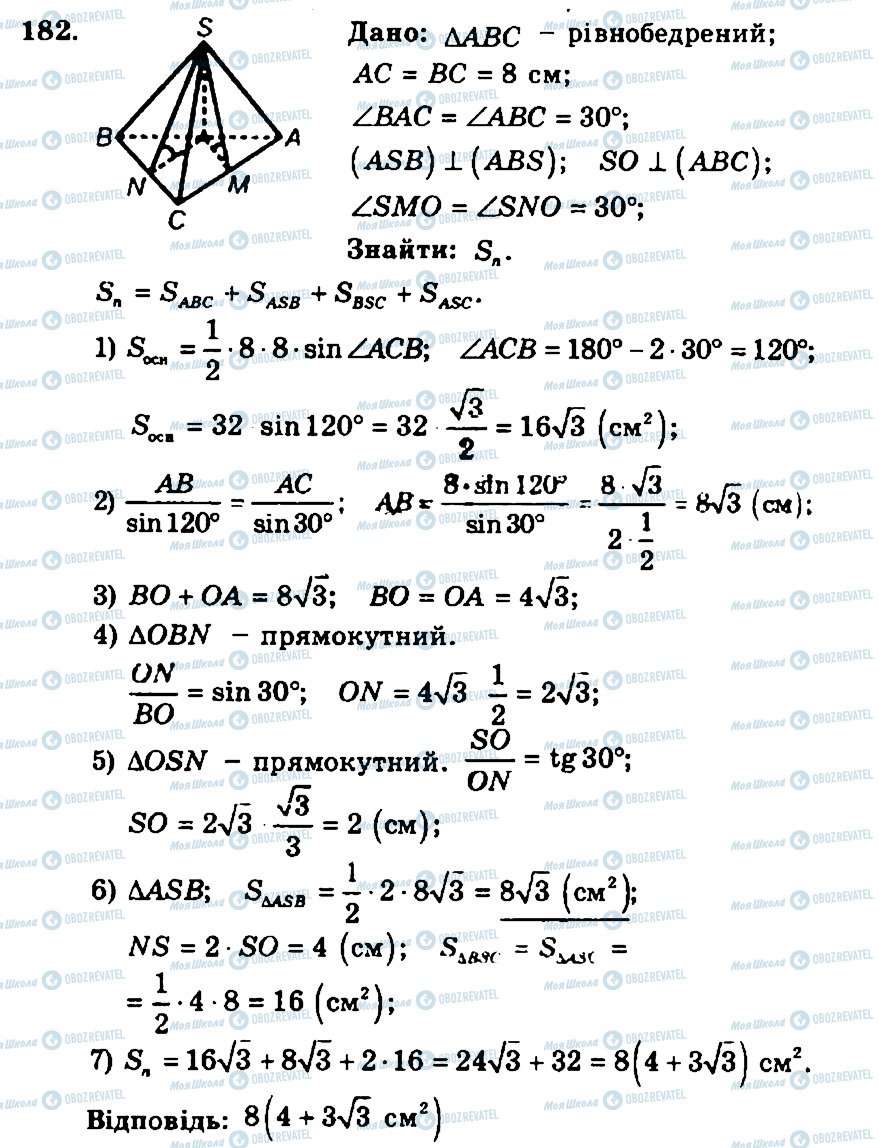 182.
S
B
A
N
M
C
Дано: ΔABC – рівнобедрений;
AC = BC = 8 см;
∠BAC = ∠ABC = 30°;
(ASB) ⊥ (ABS); SO ⊥ (ABC);
∠SMO = ∠SNO = 30°;
Знайти: Sₙ.
Sₙ = S_ABC + S_ASB + S_BSC + S_ASC.
1) S_осн = 1/2 · 8 · 8 · sin∠ACB; ∠ACB = 180° – 2 · 30° = 120°;
S_осн = 32 sin120° = 32 · √3/2 = 16√3 (см²);
2) AB/sin120° = AC/sin30°; AB = 8 · sin120°/sin30° = 8 · √3/(2 · 1/2) = 8√3 (см);
3) BO + OA = 8√3; BO = OA = 4√3;
4) ΔOBN – прямокутний.
ON/BO = sin30°; ON = 4√3 · 1/2 = 2√3;
5) ΔOSN – прямокутний. SO/ON = tg30°;
SO = 2√3 · √3/3 = 2 (см);
6) ΔASB; S_ΔASB = 1/2 · 2 · 8√3 = 8√3 (см²);
NS = 2 · SO = 4 (см); S_ΔBSC = S_ΔASC =
= 1/2 · 4 · 8 = 16 (см²);
7) Sₙ = 16√3 + 8√3 + 2 · 16 = 24√3 + 32 = 8(4 + 3√3) см².
Відповідь: 8(4 + 3√3 см²)
МояШкола OBOZREVATEL